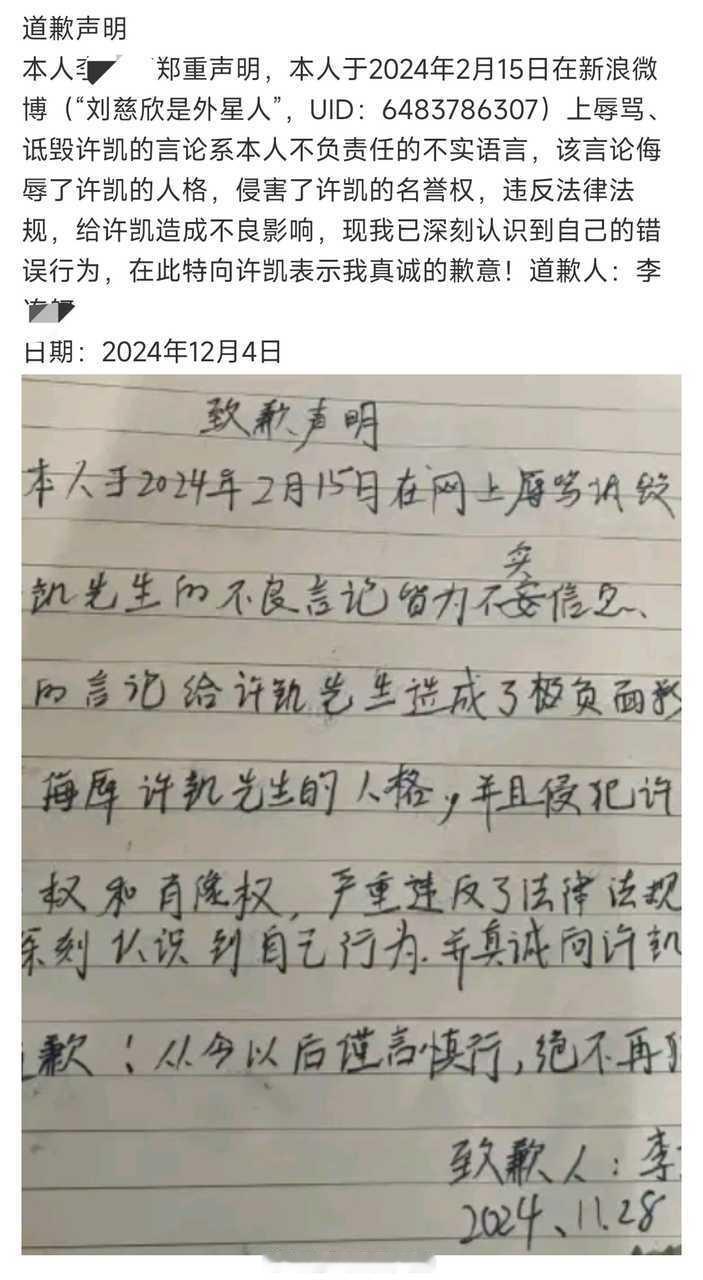 道歉声明
本人李 郑重声明，本人于2024年2月15日在新浪微
博（“刘慈欣是外星人”，UID：6483786307）上辱骂、
诋毁许凯的言论系本人不负责任的不实语言，该言论侮
辱了许凯的人格，侵害了许凯的名誉权，违反法律法
规，给许凯造成不良影响，现我已深刻认识到自己的错
误行为，在此特向许凯表示我真诚的歉意！道歉人：李
日期：2024年12月4日
致歉声明
本人于2024年2月15日在网上辱骂诋毁
凯先生的不良言论皆为不实信息、
的言论给许凯先生造成了极负面影
侮辱许凯先生的人格，并且侵犯许
权和肖像权，严重违反了法律法规
深刻认识到自己行为.并真诚向许凯
歉！从今以后谨言慎行，绝不再犯
致歉人：李
2024、11.28